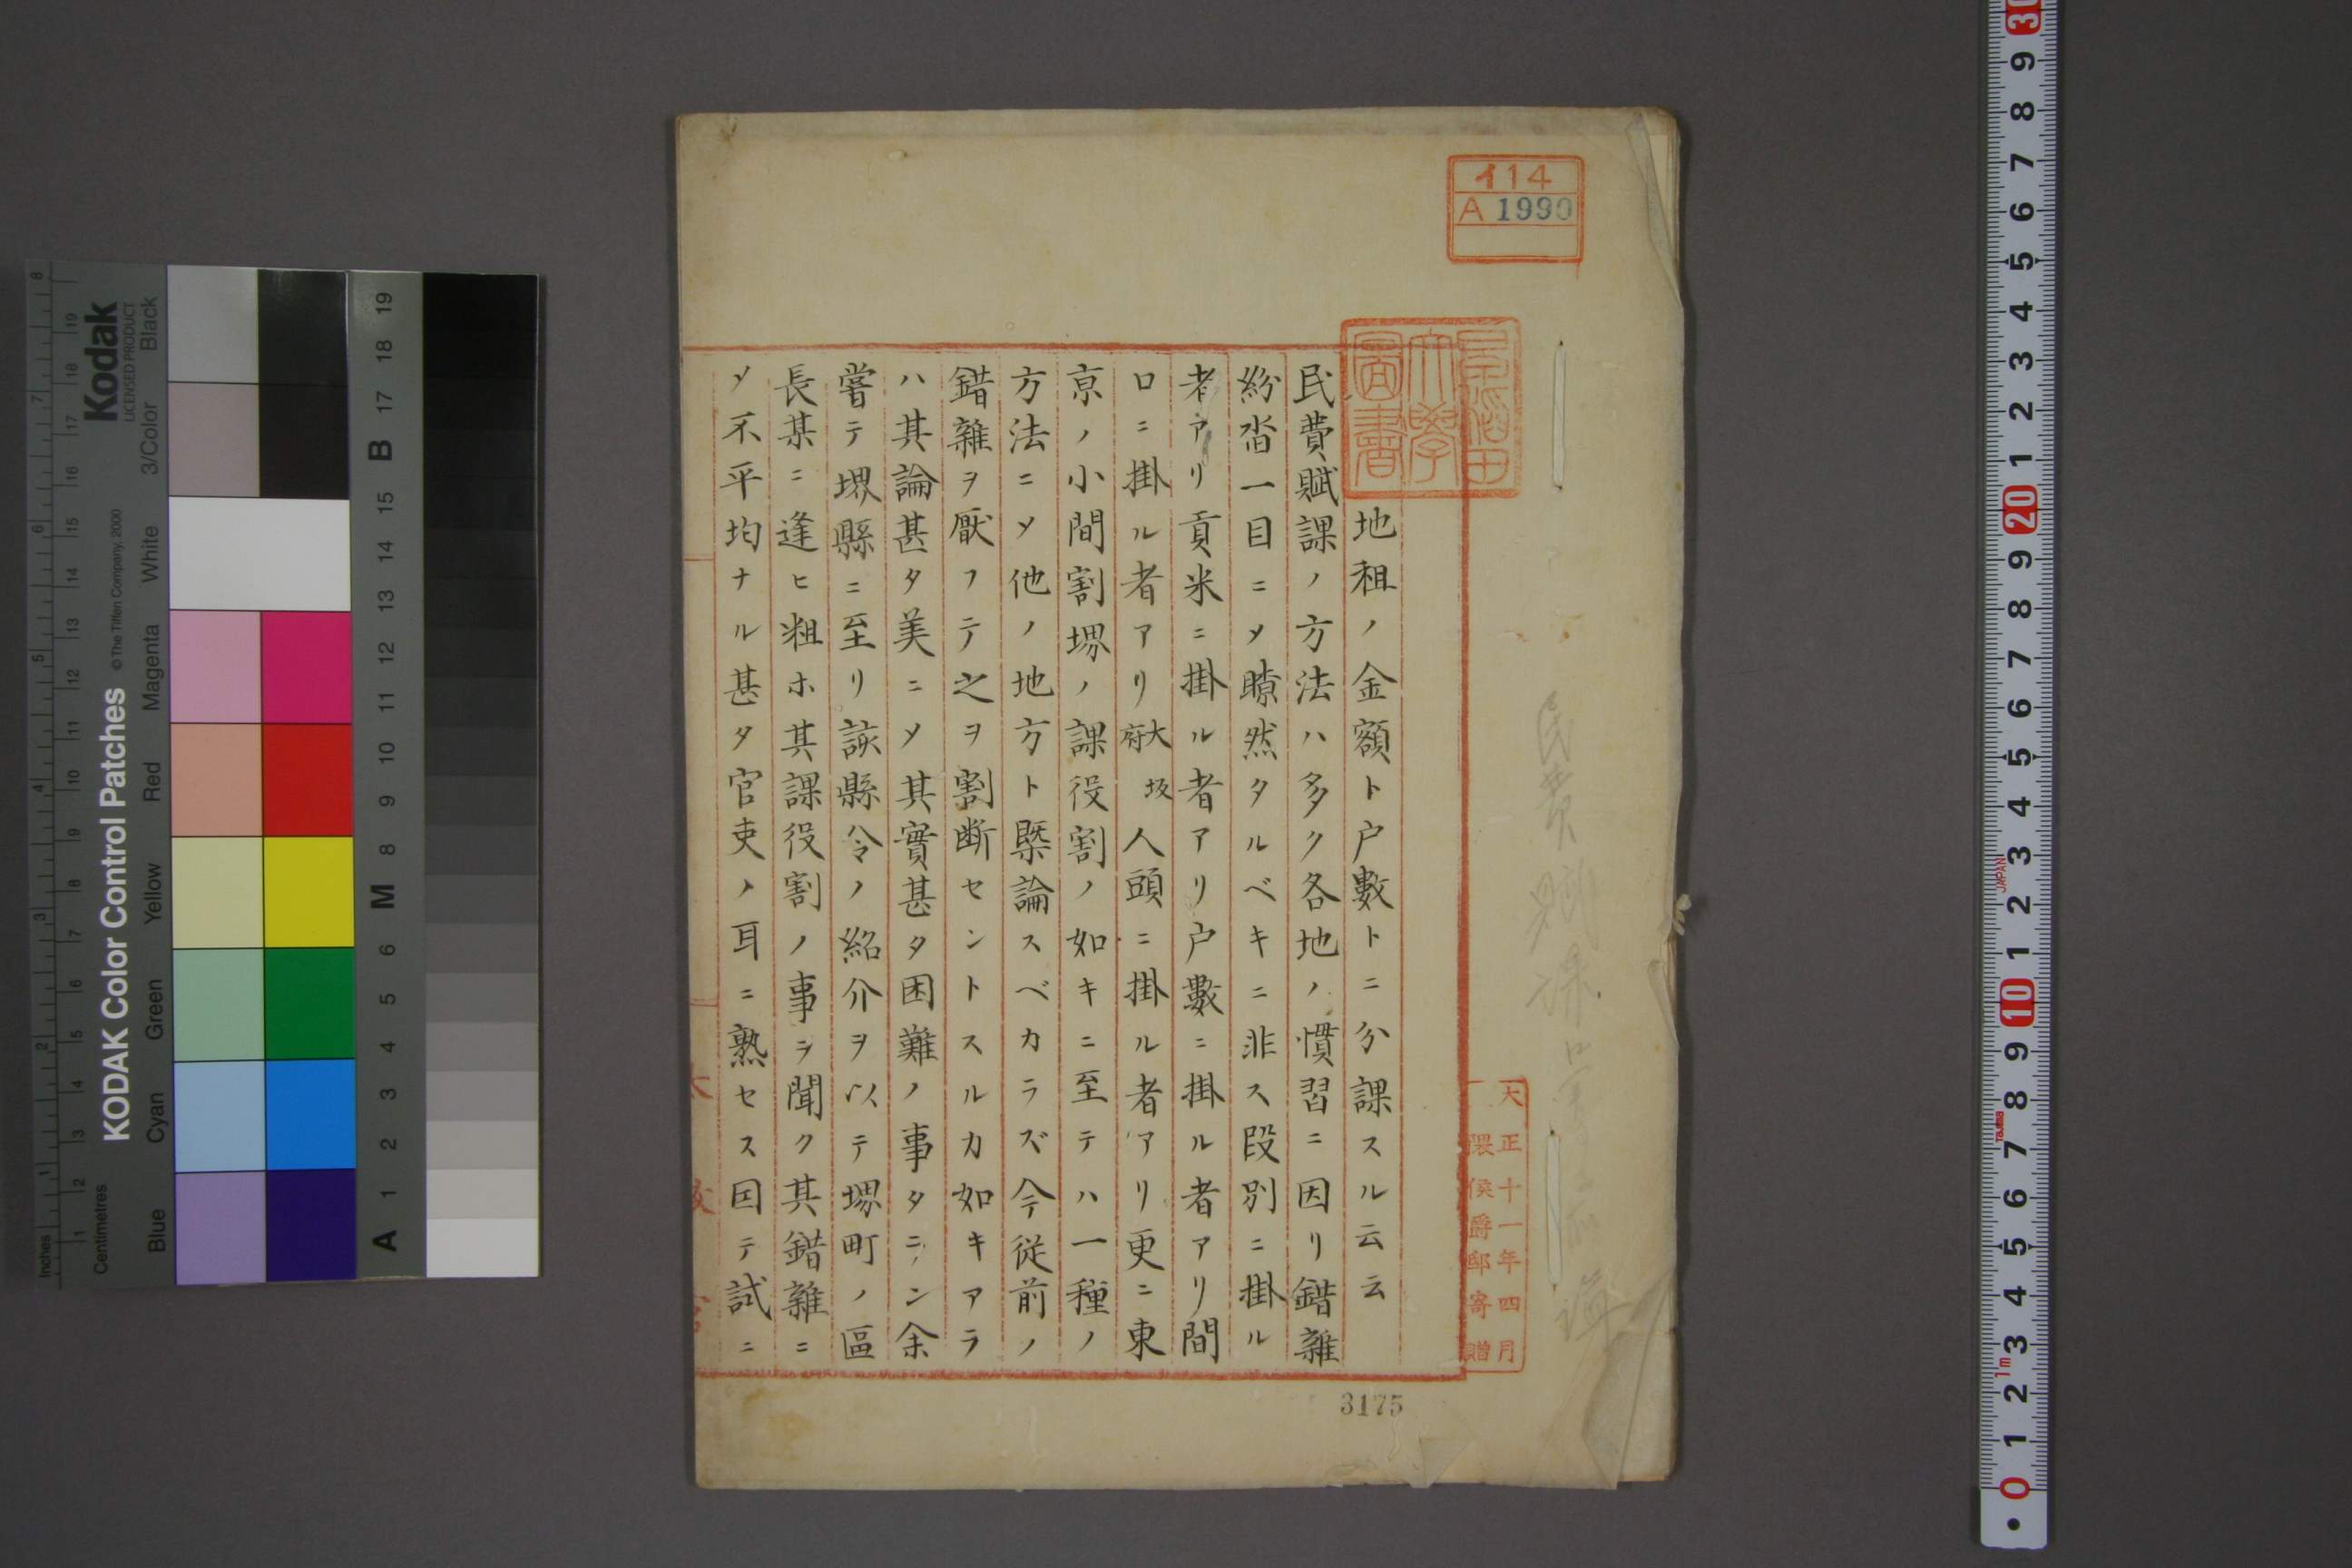 イ14
A 1990
早稲田大學圖書
地租ノ金額ト户數トニ分課スル云云
民費賦課ノ方法ハ多ク各地ノ慣習ニ因リ錯雜
紛沓一目ニ〆瞭然タルベキニ非ス段別ニ掛ル
者アリ貢米ニ掛ル者アリ户數ニ掛ル者アリ間
口ニ掛ル者アリ大坂府人頭ニ掛ル者アリ更ニ東
京ノ小間割堺ノ課役割ノ如キニ至テハ一種ノ
方法ニ〆他ノ地方ト槩論スベカラズ今従前ノ
錯雜ヲ厭フテ之ヲ割断セントスルカ如キアラ
ハ其論甚タ美ニ〆其實甚タ困難ノ事タニン余
嘗テ堺縣ニ至リ該縣令ノ紹介ヲ以テ堺町ノ區
長某ニ逢ヒ粗ホ其課役割ノ事ヲ聞ク其錯雜ニ
〆不平均ナル甚タ官吏ノ耳ニ熟セス因テ試ニ
民費賦課
大正十一年四月
隈侯爵邸寄贈
3175
KODAK Color Control Patches
© The Tiffen Company, 2000
Kodak
LICENSED PRODUCT
Inches
Centimetres
Blue
Cyan
Green
Yellow
Red
Magenta
White
3/Color
Black
A 1 2 3 4 5 6 M 8 9 10 11 12 13 14 15 B 17 18 19
JAPAN
Tajima
1m
0 1 2 3 4 5 6 7 8 9 10 1 2 3 4 5 6 7 8 9 20 1 2 3 4 5 6 7 8 9 30